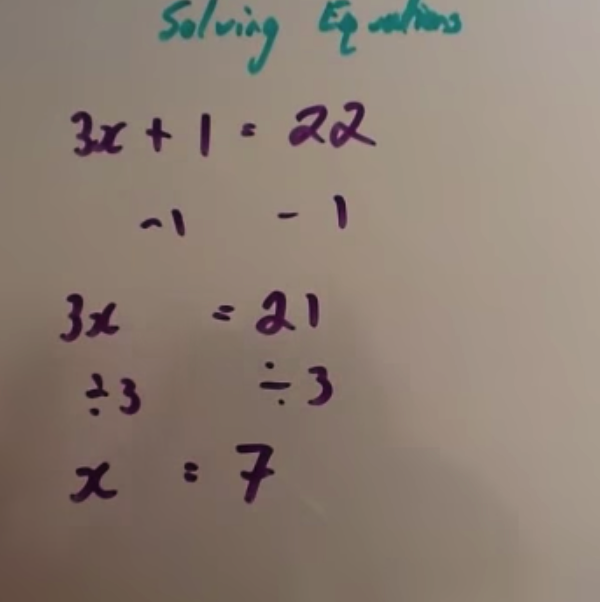 Solving Equations
3x + 1 = 22
-1 - 1
3x = 21
÷3 ÷3
x = 7